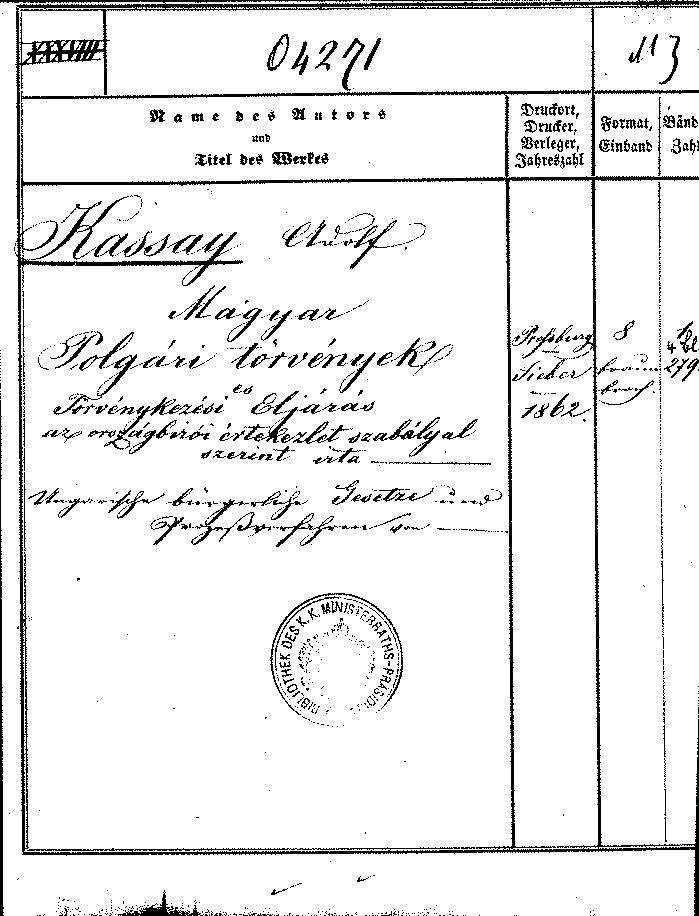 XXXVIII
04271
Name des Autors
und
Titel des Werkes
Druckort,
Drucker,
Verleger,
Jahreszahl
Format,
Einband
Bänd
Zahl
Kassay Adolf.
Magyar
Polgári törvények
Törvénykezési és Eljárás
az országbirói értekezlet szabályai
szerint irta
Ungarische bürgerliche Gesetze und
Prozeßverfahren von
Preßburg
Sieber
1862.
8
braun
broch.
279
BIBLIOTHEK DES K. K. MINISTERRATHS-PRÄSIDI